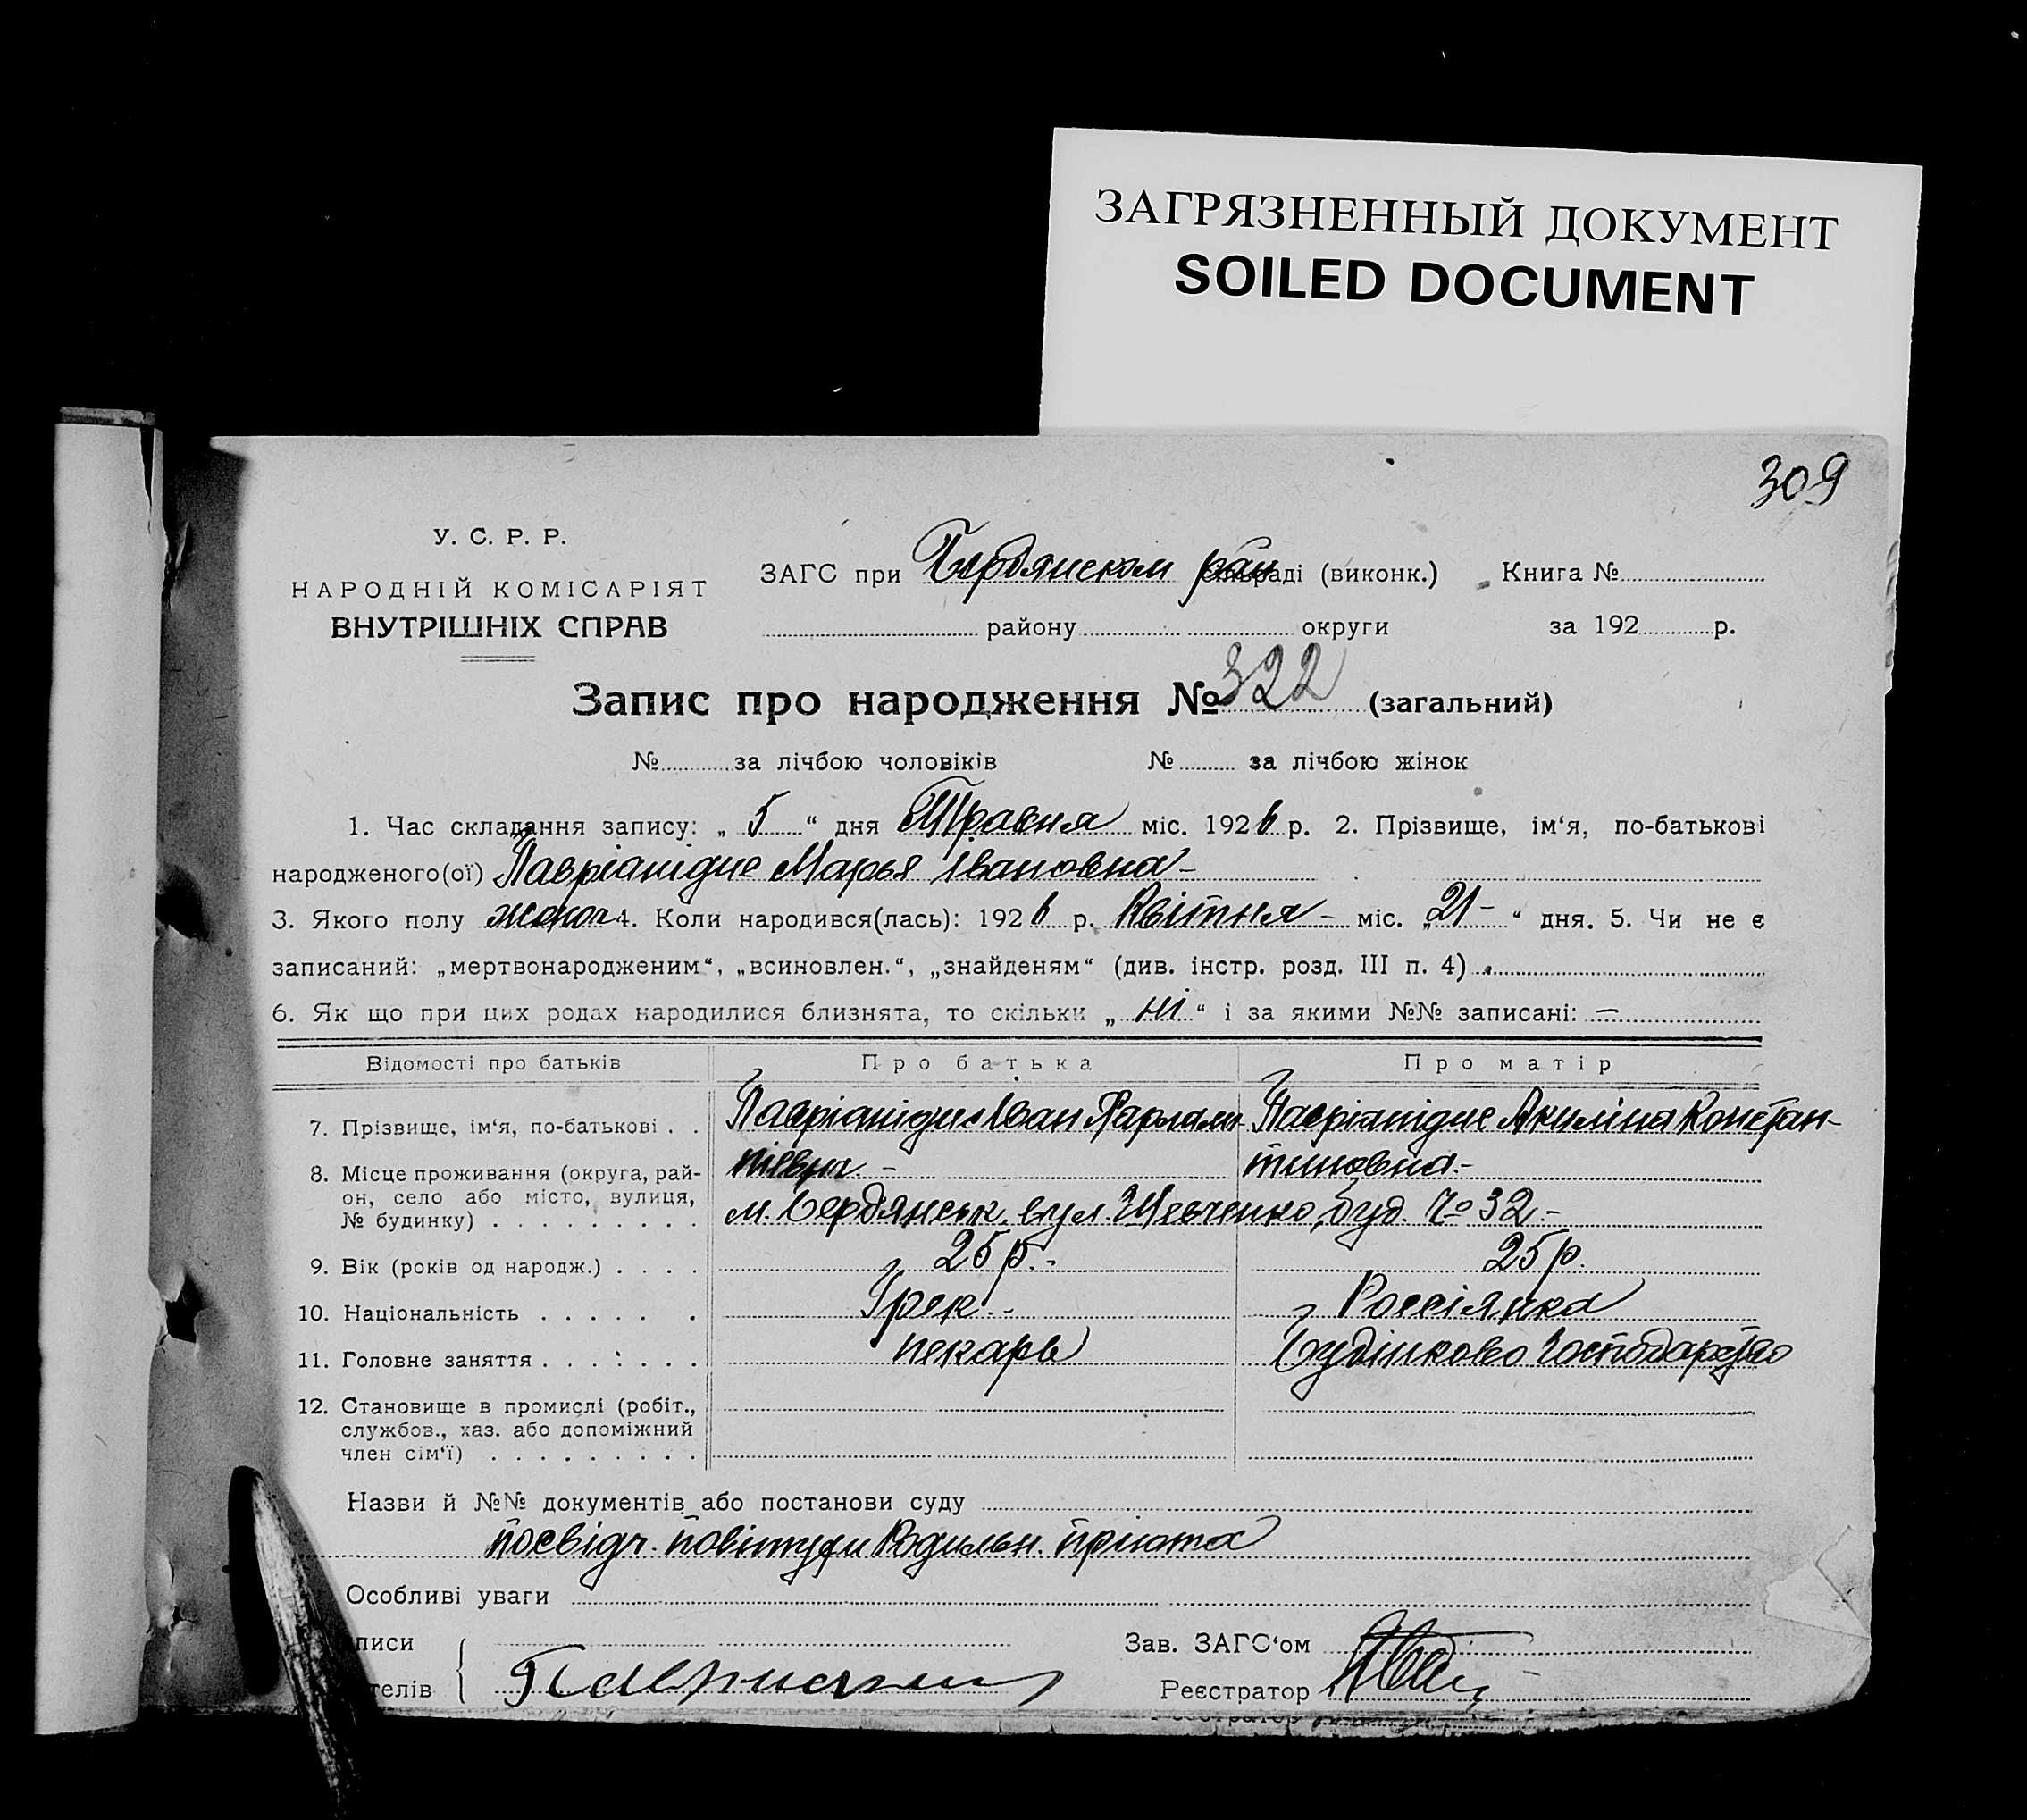 ЗАГРЯЗНЕННЫЙ ДОКУМЕНТ
SOILED DOCUMENT
309
У. С. Р. Р.
НАРОДНІЙ КОМІСАРІЯТ
ВНУТРІШНІХ СПРАВ
ЗАГС при Бердянском рай раді (виконк.) Книга №
району округи за 192 р.
Запис про народження № 322 (загальний)
№ за лічбою чоловіків № за лічбою жінок
1. Час складання запису: „ 5 “ дня Травня міс. 1926 р. 2. Прізвище, ім‘я, по-батькові
народженого(ої) Павріанідис Марья Івановна -
3. Якого полу жоноч. 4. Коли народився(лась): 1926 р. Квітня - міс. „ 21 - “ дня. 5. Чи не є
записаний: „мертвонародженим“, „всиновлен.“, „знайденям“ (див. інстр. розд. III п. 4)
6. Як що при цих родах народилися близнята, то скільки „ ні “ і за якими №№ записані: —
Відомості про батьків Про батька Про матір
7. Прізвище, ім‘я, по-батькові . . Павріанідис Іван Харлам- Павріянідис Акиліна Констан-
тиновна.-
8. Місце проживання (округа, рай-
он, село або місто, вулиця,
№ будинку) . . . . . . . . . м. Бердянськ, вул. Шевченко, буд. № 32.-
9. Вік (років од народж.) . . . . 25 р.- 25 р.
10. Національність . . . . . . Грек.- Россіянка
11. Головне заняття . . . . . . . пекарь Будінково господарство
12. Становище в промислі (робіт.,
службов., хаз. або допоміжний
член сім‘ї) . . . . . . . . .
Назви й №№ документів або постанови суду
посвідч. Родильн. пріюта
Особливі уваги
писи Зав. ЗАГС‘ом
телів Реєстратор